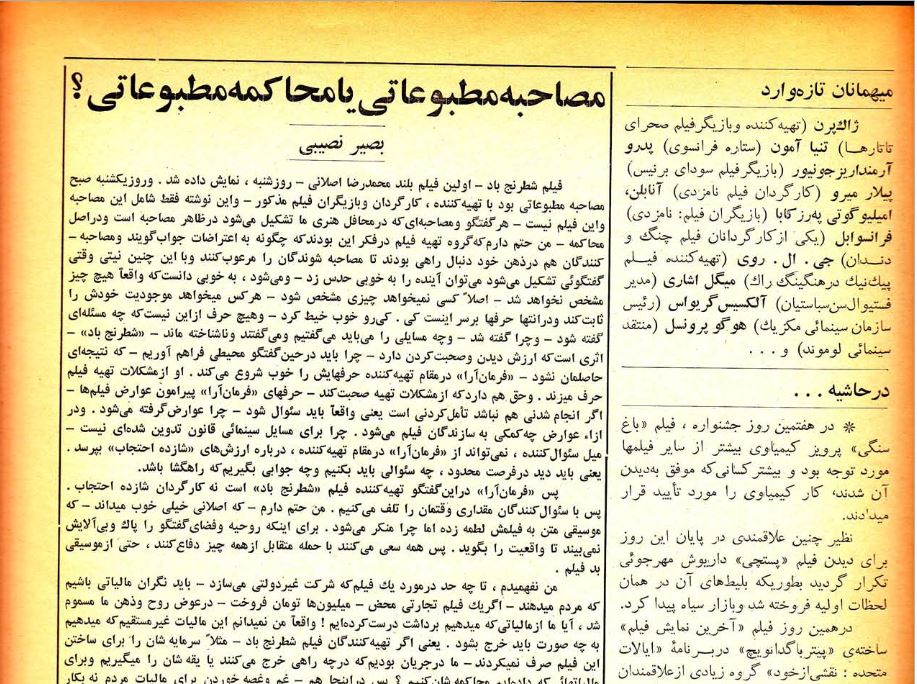 مصاحبه مطبوعاتی یا محاکمه مطبوعاتی؟
بصیر نصیبی
فیلم شطرنج باد – اولین فیلم بلند محمدرضا اصلانی – روزشنبه ، نمایش داده شد . وروزیکشنبه صبح
مصاحبه مطبوعاتی بود با تهیه‌کننده ، کارگردان وبازیگران فیلم مذکور – واین نوشته فقط شامل این مصاحبه
واین فیلم نیست – هرگفتگو ومصاحبه‌ای‌که درمحافل هنری ما تشکیل می‌شود درظاهر مصاحبه است ودراصل
محاکمه – من حتم دارم‌که‌گروه تهیه فیلم درفکر این بودندکه چگونه به اعتراضات جواب‌گویند ومصاحبه –
کنندگان هم درذهن خود دنبال راهی بودند تا مصاحبه شوندگان را مرعوب‌کنند وبا این چنین نیتی وقتی
گفتگوئی تشکیل می‌شود می‌توان آینده را به خوبی حدس زد – ومی‌شود ، به خوبی دانست‌که واقعاً هیچ چیز
مشخص نخواهد شد – اصلاً کسی نمیخواهد چیزی مشخص شود – هرکس میخواهد موجودیت خودش را
ثابت‌کند ودرانتها حرفها برسر اینست کی . کی‌رو خوب خیط کرد – وهیچ حرف ازاین نیست‌که چه مسئله‌ای
گفته شود – وچرا گفته شد – وچه مسایلی را می‌باید می‌گفتیم ومی‌گفتند وناشناخته ماند – «شطرنج باد» –
اثری است‌که ارزش دیدن وصحبت‌کردن دارد – چرا باید درحین‌گفتگو محیطی فراهم آوریم – که نتیجه‌ای
حاصلمان نشود – «فرمان‌آرا» درمقام تهیه‌کننده حرفهایش را خوب شروع می‌کند . او ازمشکلات تهیه فیلم
حرف میزند . وحق هم داردکه ازمشکلات تهیه صحبت‌کند – حرفهای «فرمان‌آرا» پیرامون عوارض فیلم‌ها –
اگر انجام شدنی هم نباشد تأمل‌کردنی است یعنی واقعاً باید سئوال شود – چرا عوارض‌گرفته می‌شود . ودر
ازاء عوارض چه‌کمکی به سازندگان فیلم می‌شود . چرا برای مسایل سینمائی قانون تدوین شده‌ای نیست –
میل سئوال‌کننده ، نمی‌تواند از «فرمان‌آرا» درمقام تهیه‌کننده ، درباره ارزش‌های «شازده احتجاب» بپرسد .
یعنی باید دید درفرصت محدود ، چه سئوالی باید بکنیم وچه جوابی بگیریم‌که راهگشا باشد.
پس «فرمان‌آرا» دراین‌گفتگو تهیه‌کننده فیلم «شطرنج باد» است نه کارگردان شازده احتجاب .
پس با سئوال‌کنندگان مقداری وقتمان را تلف می‌کنیم . من حتم دارم – که اصلانی خیلی خوب میداند – که
موسیقی متن به فیلمش لطمه زده اما چرا منکر می‌شود . برای اینکه روحیه وفضای‌گفتگو را پاک وبی‌آلایش
نمی‌بیند تا واقعیت را بگوید . پس همه سعی می‌کنند با حمله متقابل ازهمه چیز دفاع‌کنند ، حتی ازموسیقی
بد فیلم .
من نفهمیدم ، تا چه حد درمورد یك فیلم‌که شرکت غیردولتی می‌سازد – باید نگران مالیاتی باشیم
که مردم میدهند – اگریك فیلم تجارتی محض – میلیون‌ها تومان فروخت – درعوض روح وذهن ما مسموم
شد ، آیا ما ازمالیاتی‌که میدهیم برداشت درست‌کرده‌ایم ! واقعاً من نمیدانم این مالیات غیرمستقیم‌که میدهیم
به چه صورت باید خرج بشود . یعنی اگر تهیه‌کنندگان فیلم شطرنج باد – مثلاً سرمایه شان را برای ساختن
این فیلم صرف نمیکردند – ما درجریان بودیم‌که درچه راهی خرج می‌کنند یا یقه شان را میگیریم وبرای
میهمانان تازه‌وارد
ژاك‌پرن (تهیه‌کننده وبازیگرفیلم صحرای
تاتارهـا) تنیا آمون (ستاره فرانسوی) پدرو
آرمنداریزجونیور (بازیگرفیلم سودای برنیس)
پیلار میرو (کارگردان فیلم نامزدی) آنابلن،
امیلیوگوتی په‌رزکابا (بازیگران فیلم: نامزدی)
فرانسوابل (یکی ازکارگردانان فیلم چنگ و
دنـدان) جی . ال . روی (تهیه‌کننده فیـلم
پیك‌نیك درهنگینگ راك) میگل اشاری (مدیر
فستیوال‌سن‌سباستیان) آلکسیس‌گریواس (رئیس
سازمان سینمائی مکزیك) هوگو پرونسل (منتقد
سینمائی لوموند) و . . .
درحاشیه . . .
* در هفتمین روز جشنواره ، فیلم «باغ
سنگی» پرویز کیمیاوی بیشتر از سایر فیلمها
مورد توجه بود و بیشتر کسانی‌که موفق به‌دیدن
آن شدند، کار کیمیاوی را مورد تأیید قرار
میدادند.
نظیر چنین علاقمندی در پایان این روز
برای دیدن فیلم «پستچی» داریوش مهرجوئی
تکرار گردید بطوریکه بلیط‌های آن در همان
لحظات اولیه فروخته شد وبازار سیاه پیدا کرد.
درهمین روز فیلم «آخرین نمایش فیلم»
ساخته‌ی «پیتربا‌گدانویچ» دربـرنامهٔ «ایالات
متحده : نقشی‌ازخود» گروه زیادی ازعلاقمندان